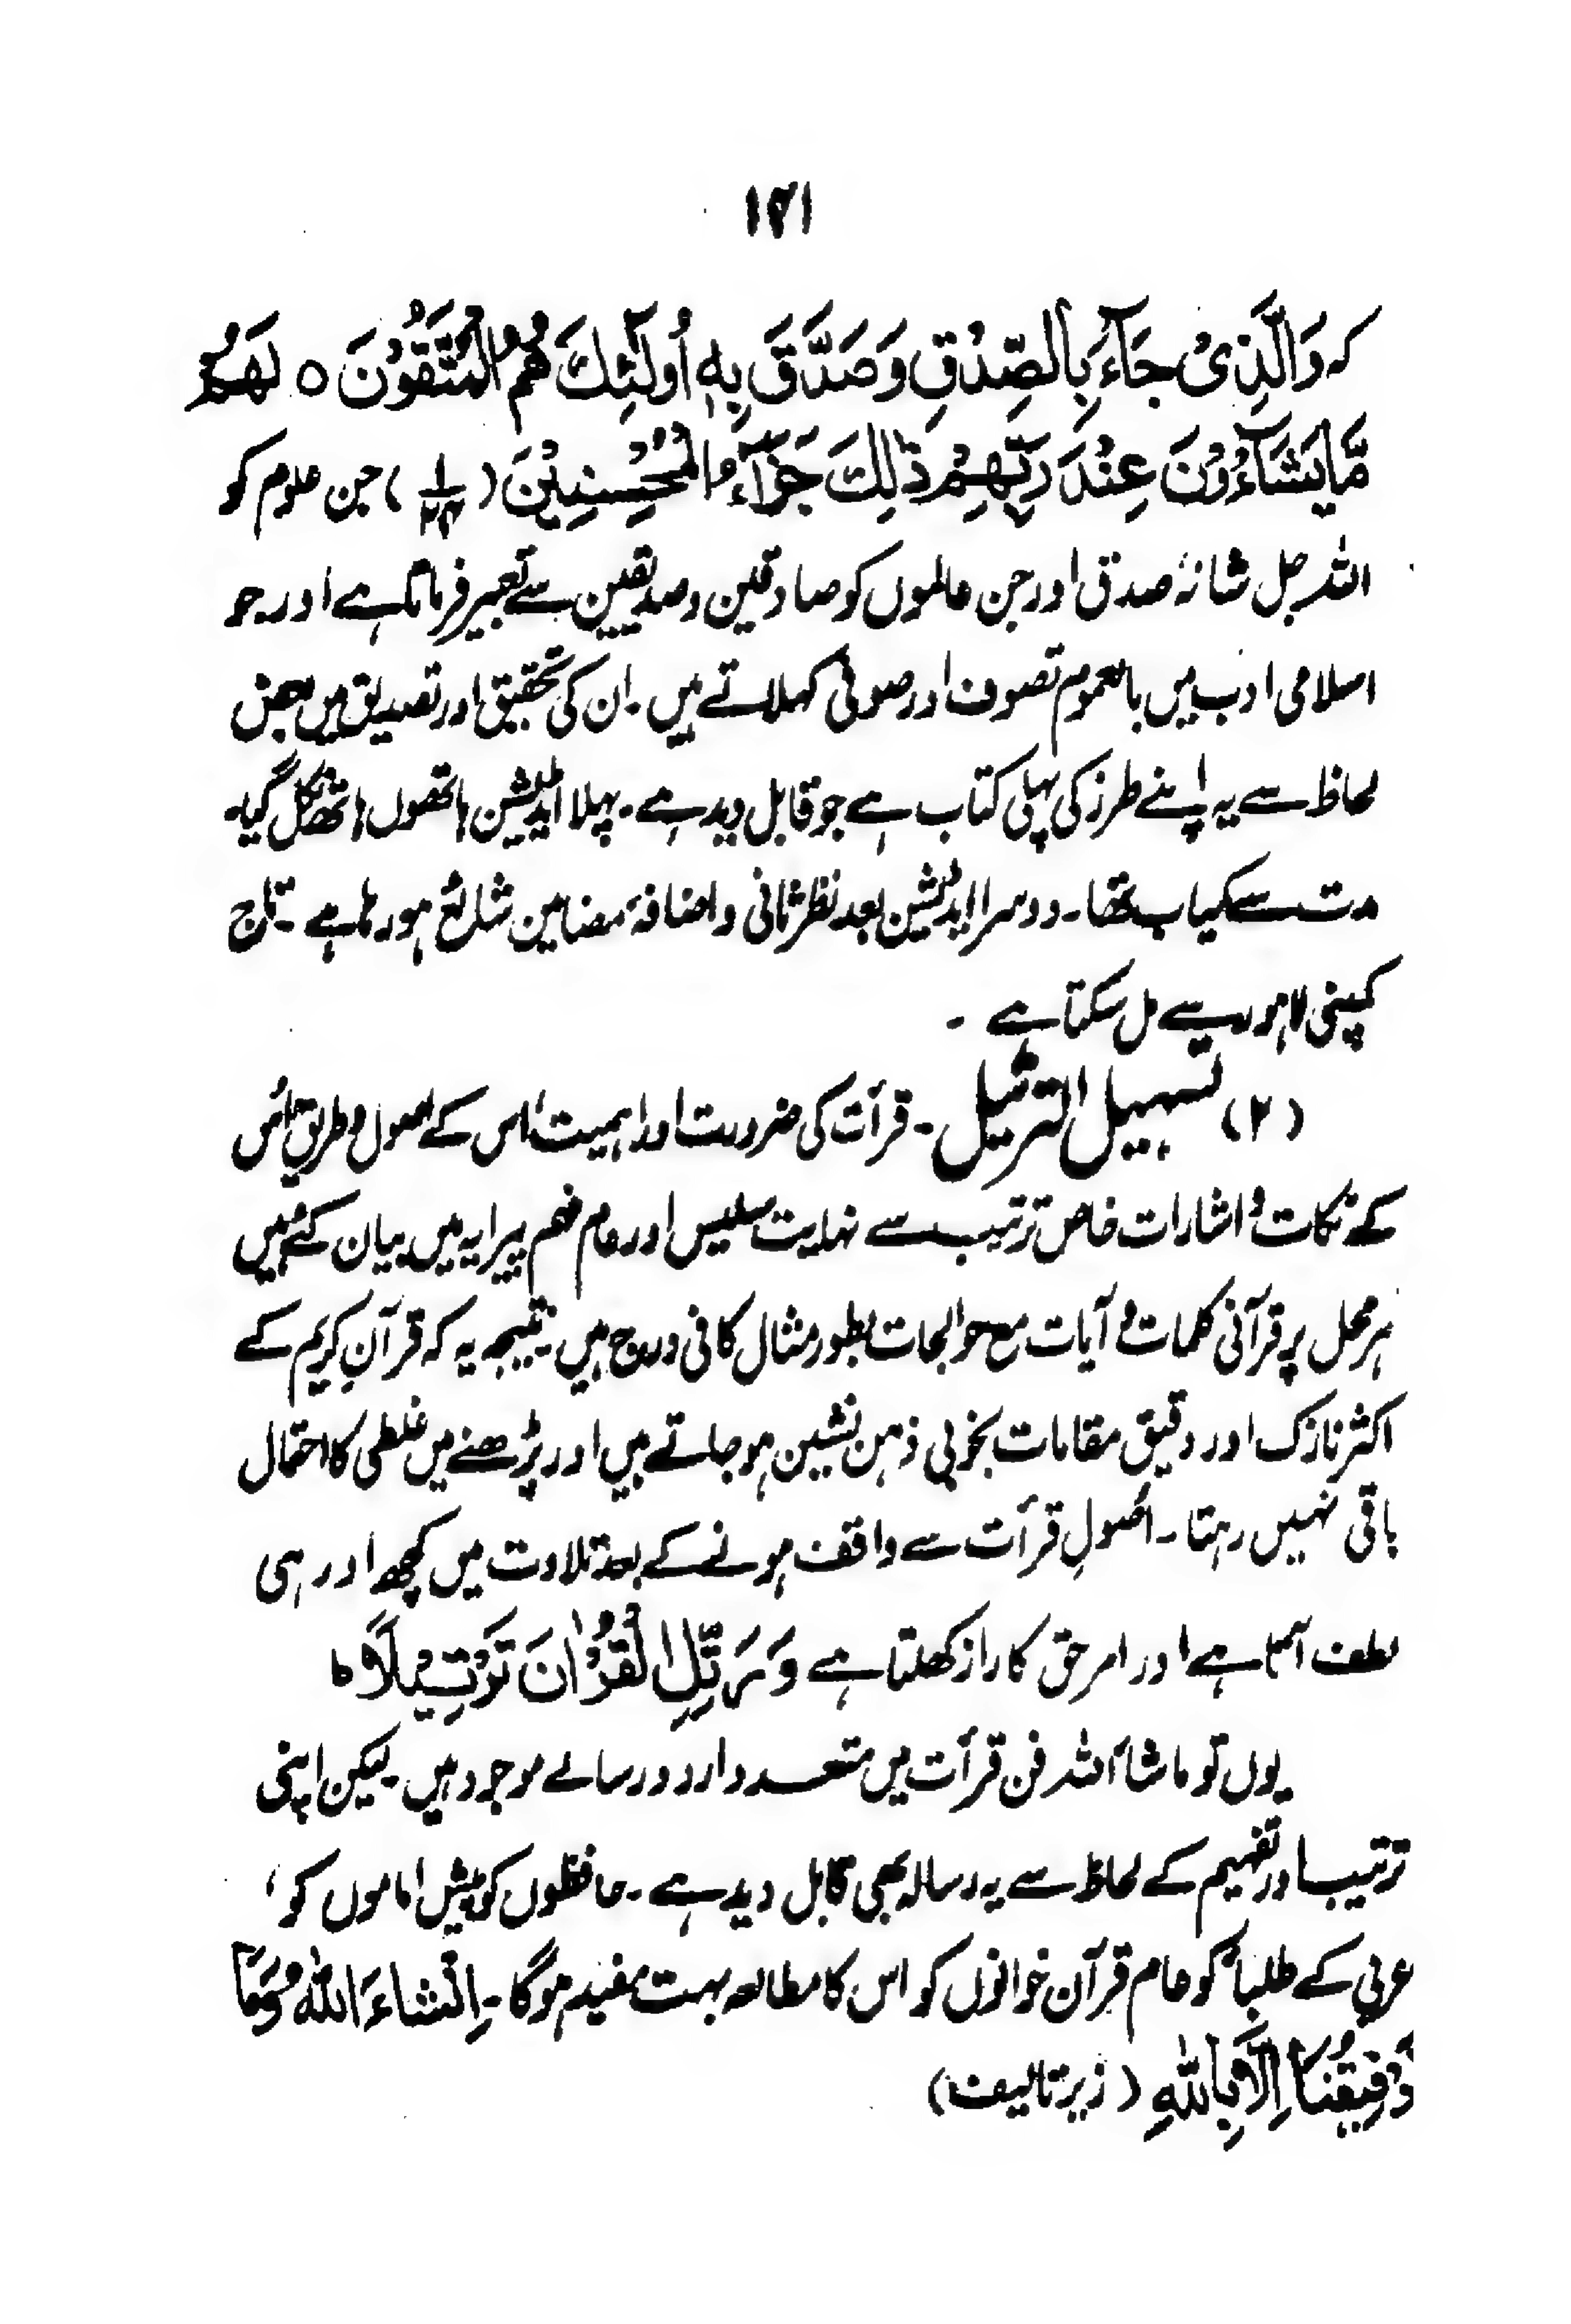 ۱۴۱
کہ وَالَّذِیْ جَآءَ بِالصِّدْقِ وَصَدَّقَ بِہٖٓ اُولٰٓئِکَ ھُمُ الْمُتَّقُوْنَ ○ لَھُمْ
مَّا یَشَآءُوْنَ عِنْدَ رَبِّھِمْ ذٰلِکَ جَزَآءُ الْمُحْسِنِیْنَ (۱/۲۴) جن علوم کو
اللہ جل شانہٗ صدق اور جن عالموں کو صادقین و صدیقین سے تعبیر فرماتا ہے اور جو
اسلامی ادب میں بالعموم تصوف اور صوفی کہلاتے ہیں ۔ ان کی تحقیق اور تصدیق میں بعض
لحاظ سے یہ اپنے طرز کی پہلی کتاب ہے جو قابل دید ہے ۔ پہلا ایڈیشن ہاتھوں ہاتھ نکل گیا۔
مدت سے کمیاب تھا ۔ دوسرا ایڈیشن بعد نظر ثانی و اضافہ مضامین شائع ہو رہا ہے ۔ تاج
کمپنی لاہور سے مل سکتا ہے ۔
(۲) تسہیل الترتیل ۔ قرآت کی ضرورت اور اہمیت اس کے اصول و طریق اس
کے نکات و اشارات خاص ترتیب سے نہایت سلیس اور عام فہم پیرایہ میں بیان کئے ہیں
ہر محل پر قرآنی کلمات و آیات مع حوالجات بطور مثال کافی درج ہیں ۔ نتیجہ یہ کہ قرآنِ کریم کے
اکثر نازک اور دقیق مقامات بخوبی ذہن نشین ہو جاتے ہیں اور پڑھنے میں غلطی کا احتمال
باقی نہیں رہتا ۔ اصولِ قرآت سے واقف ہونے کے بعد تلاوت میں کچھ اور ہی
لطف آتا ہے اور امر حق کا راز کھلتا ہے وَرَتِّلِ الْقُرْاٰنَ تَرْتِیْلًا ہ
یوں تو ماشاءاللہ فن قرآت میں متعدد اردو رسالے موجود ہیں ۔ لیکن اپنی
ترتیب اور تفہیم کے لحاظ سے یہ رسالہ بھی قابل دید ہے ۔ حافظوں کو پیش اماموں کو ،
عربی کے طلباء کو عام قرآن خوانوں کو اس کا مطالعہ بہت مفید ہوگا ۔ اِنْشَاءَ اللہُ وَمَا
تَوْفِیْقُنَا اِلَّا بِاللہِ (زیر تالیف)